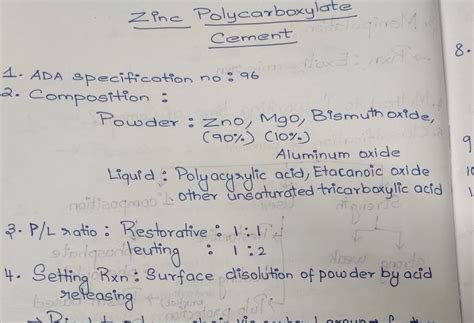 Zinc Polycarboxylate
Cement
1. ADA specification no : 96
2. Composition :
Powder : Zno, Mgo, Bismuth oxide,
(90%) (10%)
Aluminum oxide
Liquid : Polyacyrylic acid, Etacanoic oxide
other unsaturated tricarboxylic acid
3. P/L ratio : Restorative : 1 : 1
leuting : 1 : 2
4. Setting Rxn : Surface disolution of powder by acid
releasing
8.
9
10